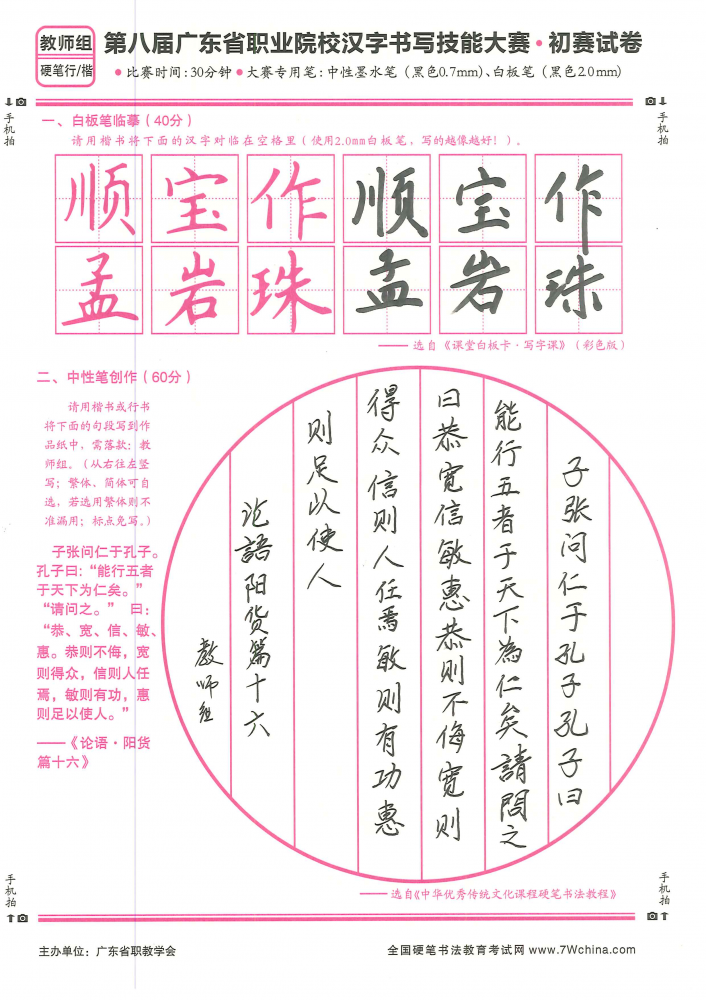 教师组
硬笔行/楷
第八届广东省职业院校汉字书写技能大赛·初赛试卷
●比赛时间:30分钟●大赛专用笔:中性墨水笔(黑色0.7mm)、白板笔(黑色2.0mm)
手机拍
手机拍
一、白板笔临摹(40分)
请用楷书将下面的汉字对临在空格里(使用2.0mm白板笔,写的越像越好!)。
顺宝作顺宝作
孟岩珠孟岩珠
——选自《课堂白板卡·写字课》(彩色版)
二、中性笔创作(60分)
请用楷书或行书
将下面的句段写到作
品纸中,需落款:教
师组。(从右往左竖
写;繁体、简体可自
选,若选用繁体则不
准漏用;标点免写。)
子张问仁于孔子。
孔子曰:“能行五者
于天下为仁矣。”
“请问之。” 曰:
“恭、宽、信、敏、
惠。恭则不侮,宽
则得众,信则人任
焉,敏则有功,惠
则足以使人。”
——《论语·阳货
篇十六》
子张问仁于孔子孔子曰
能行五者于天下為仁矣請問之
曰恭宽信敏惠恭则不侮宽则
得众信则人任焉敏则有功惠
则足以使人
论語阳货篇十六
教师组
——选自《中华优秀传统文化课程硬笔书法教程》
手机拍
手机拍
主办单位:广东省职教学会
全国硬笔书法教育考试网 www.7Wchina.com